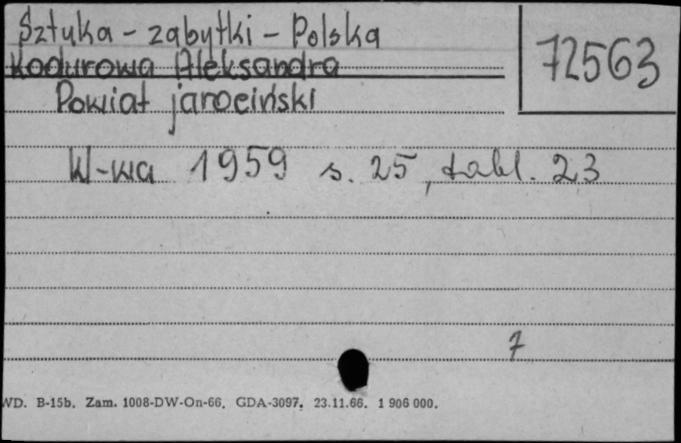 Sztuka - zabytki - Polska
72563
Kodurowa Aleksandra
Powiat jarociński
W-wa 1959 s. 25, tabl. 23
7
WD. B-15b. Zam. 1008-DW-On-66. GDA-3097. 23.11.66. 1 906 000.